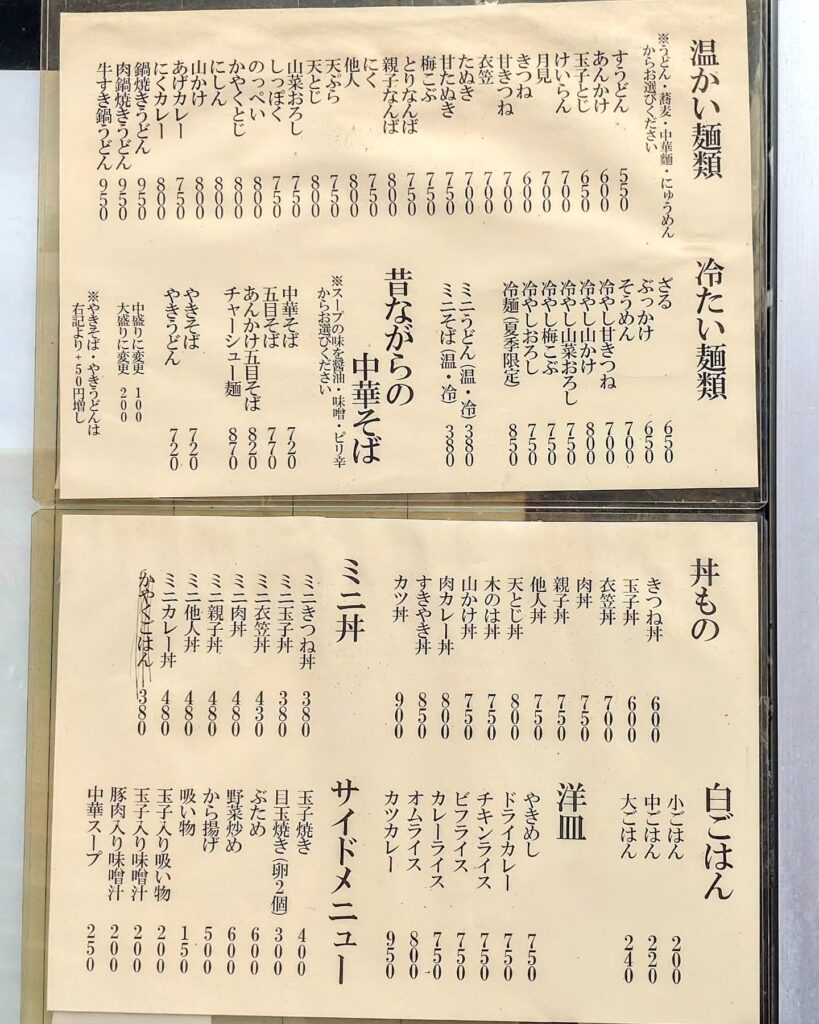 温かい麺類
※うどん・蕎麦・中華麺・にゅうめん
からお選びください
すうどん 550
あんかけ 600
玉子とじ 650
けいらん 700
月見 700
きつね 600
甘きつね 700
衣笠 700
たぬき 700
甘たぬき 750
梅こぶ 750
とりなんば 750
親子なんば 800
にく 750
他人 800
天ぷら 750
天とじ 800
山菜おろし 750
しっぽく 750
のっぺい 800
かやくとじ 800
にしん 800
山かけ 800
あげカレー 750
にくカレー 800
鍋焼きうどん 950
肉鍋焼きうどん 950
牛すき鍋うどん 950
冷たい麺類
ざる 650
ぶっかけ 650
そうめん 700
冷やし甘きつね 700
冷やし山かけ 800
冷やし山菜おろし 750
冷やし梅こぶ 750
冷やしおろし 750
冷麺(夏季限定) 850
ミニうどん(温・冷) 380
ミニそば(温・冷) 380
昔ながらの
中華そば
※スープの味を醤油・味噌・ピリ辛
からお選びください
中華そば 720
五目そば 770
あんかけ五目そば 820
チャーシュー麺 870
やきそば 720
やきうどん 720
中盛りに変更 100
大盛りに変更 200
※やきそば・やきうどんは
右記より+50円増し
丼もの
きつね丼 600
玉子丼 600
衣笠丼 700
肉丼 750
親子丼 750
他人丼 750
天とじ丼 800
木のは丼 750
山かけ丼 750
肉カレー丼 800
すきやき丼 850
カツ丼 900
ミニ丼
ミニきつね丼 380
ミニ玉子丼 380
ミニ衣笠丼 430
ミニ肉丼 480
ミニ親子丼 480
ミニ他人丼 480
ミニカレー丼 480
かやくごはん 380
白ごはん
小ごはん 200
中ごはん 220
大ごはん 240
洋皿
やきめし 750
ドライカレー 750
チキンライス 750
ビフライス 750
カレーライス 750
オムライス 800
カツカレー 950
サイドメニュー
玉子焼き 400
目玉焼き(卵2個) 300
ぶため 600
野菜炒め 600
から揚げ 500
吸い物 150
玉子入り吸い物 200
玉子入り味噌汁 200
豚肉入り味噌汁 200
中華スープ 250